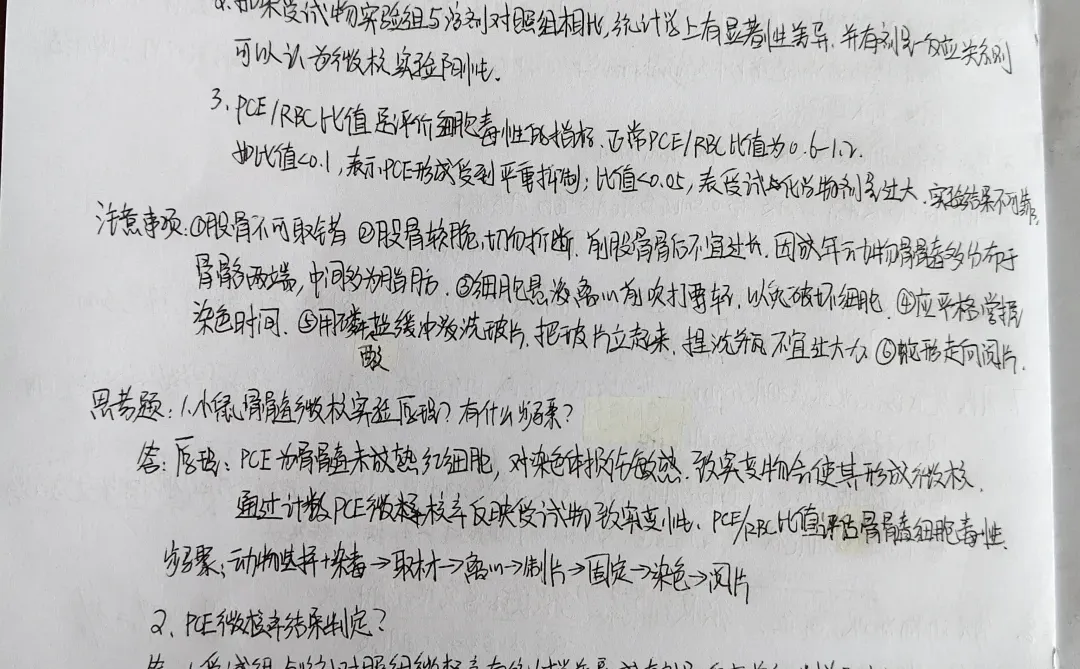 2.如果受试物实验组与溶剂对照组相比,统计学上有显著性差异.并有剂量-反应关系则
可以认为微核实验阳性.
3.PCE/RBC比值是评价细胞毒性的指标.正常PCE/RBC比值为0.6-1.2.
如比值<0.1,表示PCE形成受到严重抑制;比值<0.05,表受试化学物剂量过大.实验结果不可靠.
注意事项:①股骨不可取错 ②股骨软脆,切勿折断.削股骨骨后不宜过长.因成年动物骨髓多分布于
骨骼两端,中间多为脂肪.③细胞悬液离心前吹打要轻.以免破坏细胞.④应严格掌握
染色时间.⑤用磷酸盐缓冲液洗玻片.把玻片立起来.捏洗瓶不宜过大力 ⑥蛇形走向阅片.
思考题:1.小鼠骨髓微核实验原理?有什么步骤?
答:原理:PCE为骨髓未成熟红细胞,对染色体损伤敏感.致突变物会使其形成微核.
通过计数PCE微核率反映受试物致突变性.PCE/RBC比值评估骨髓细胞毒性.
步骤:动物选择+染毒→取材→离心→制片→固定→染色→阅片
2、PCE微核率结果判定?